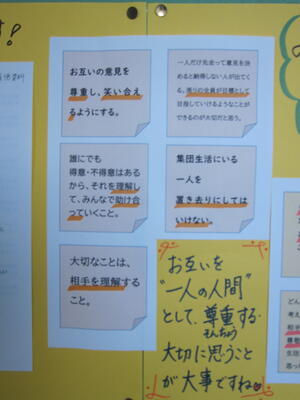 す!
お互いの意見を
尊重し、笑い合え
るようにする。
一人だけ先走って意見を決
めると納得しない人が出てく
る。周りの全員が目標として
目指していけるようなことが
できるのが大切だと思う。
誰にでも
得意・不得意はある
から、それを理解し
て、みんなで助け合
っていくこと。
集団生活にいる
一人を
置き去りにしては
いけない。
大切なことは、
相手を理解する
こと。
お互いを
"一人の人間"
として、尊重する。
そんちょう
大切に思うこと
が大事ですね